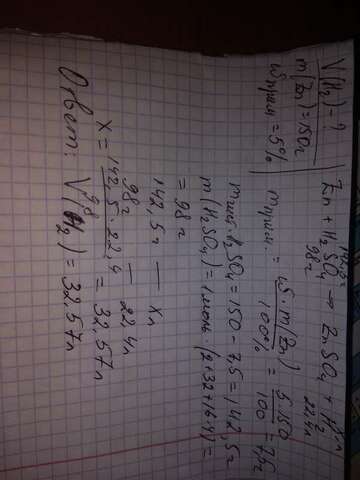 V(H₂) - ?
m(Zn) = 150г
ωприм = 5%
142,5г
Zn + H₂SO₄ → ZnSO₄ + H₂
98г 22,4л
mприм = ω · m(Zn) / 100% = 5 · 150 / 100 = 7,5г
mчис. H₂SO₄ = 150 - 7,5 = 142,5г
m(H₂SO₄) = 1моль · (2+32+16·4) =
= 98г
142,5г — Xл
98г — 22,4л
X = 142,5 · 22,4 / 98 = 32,57л
Ответ: V(H₂) = 32,57л